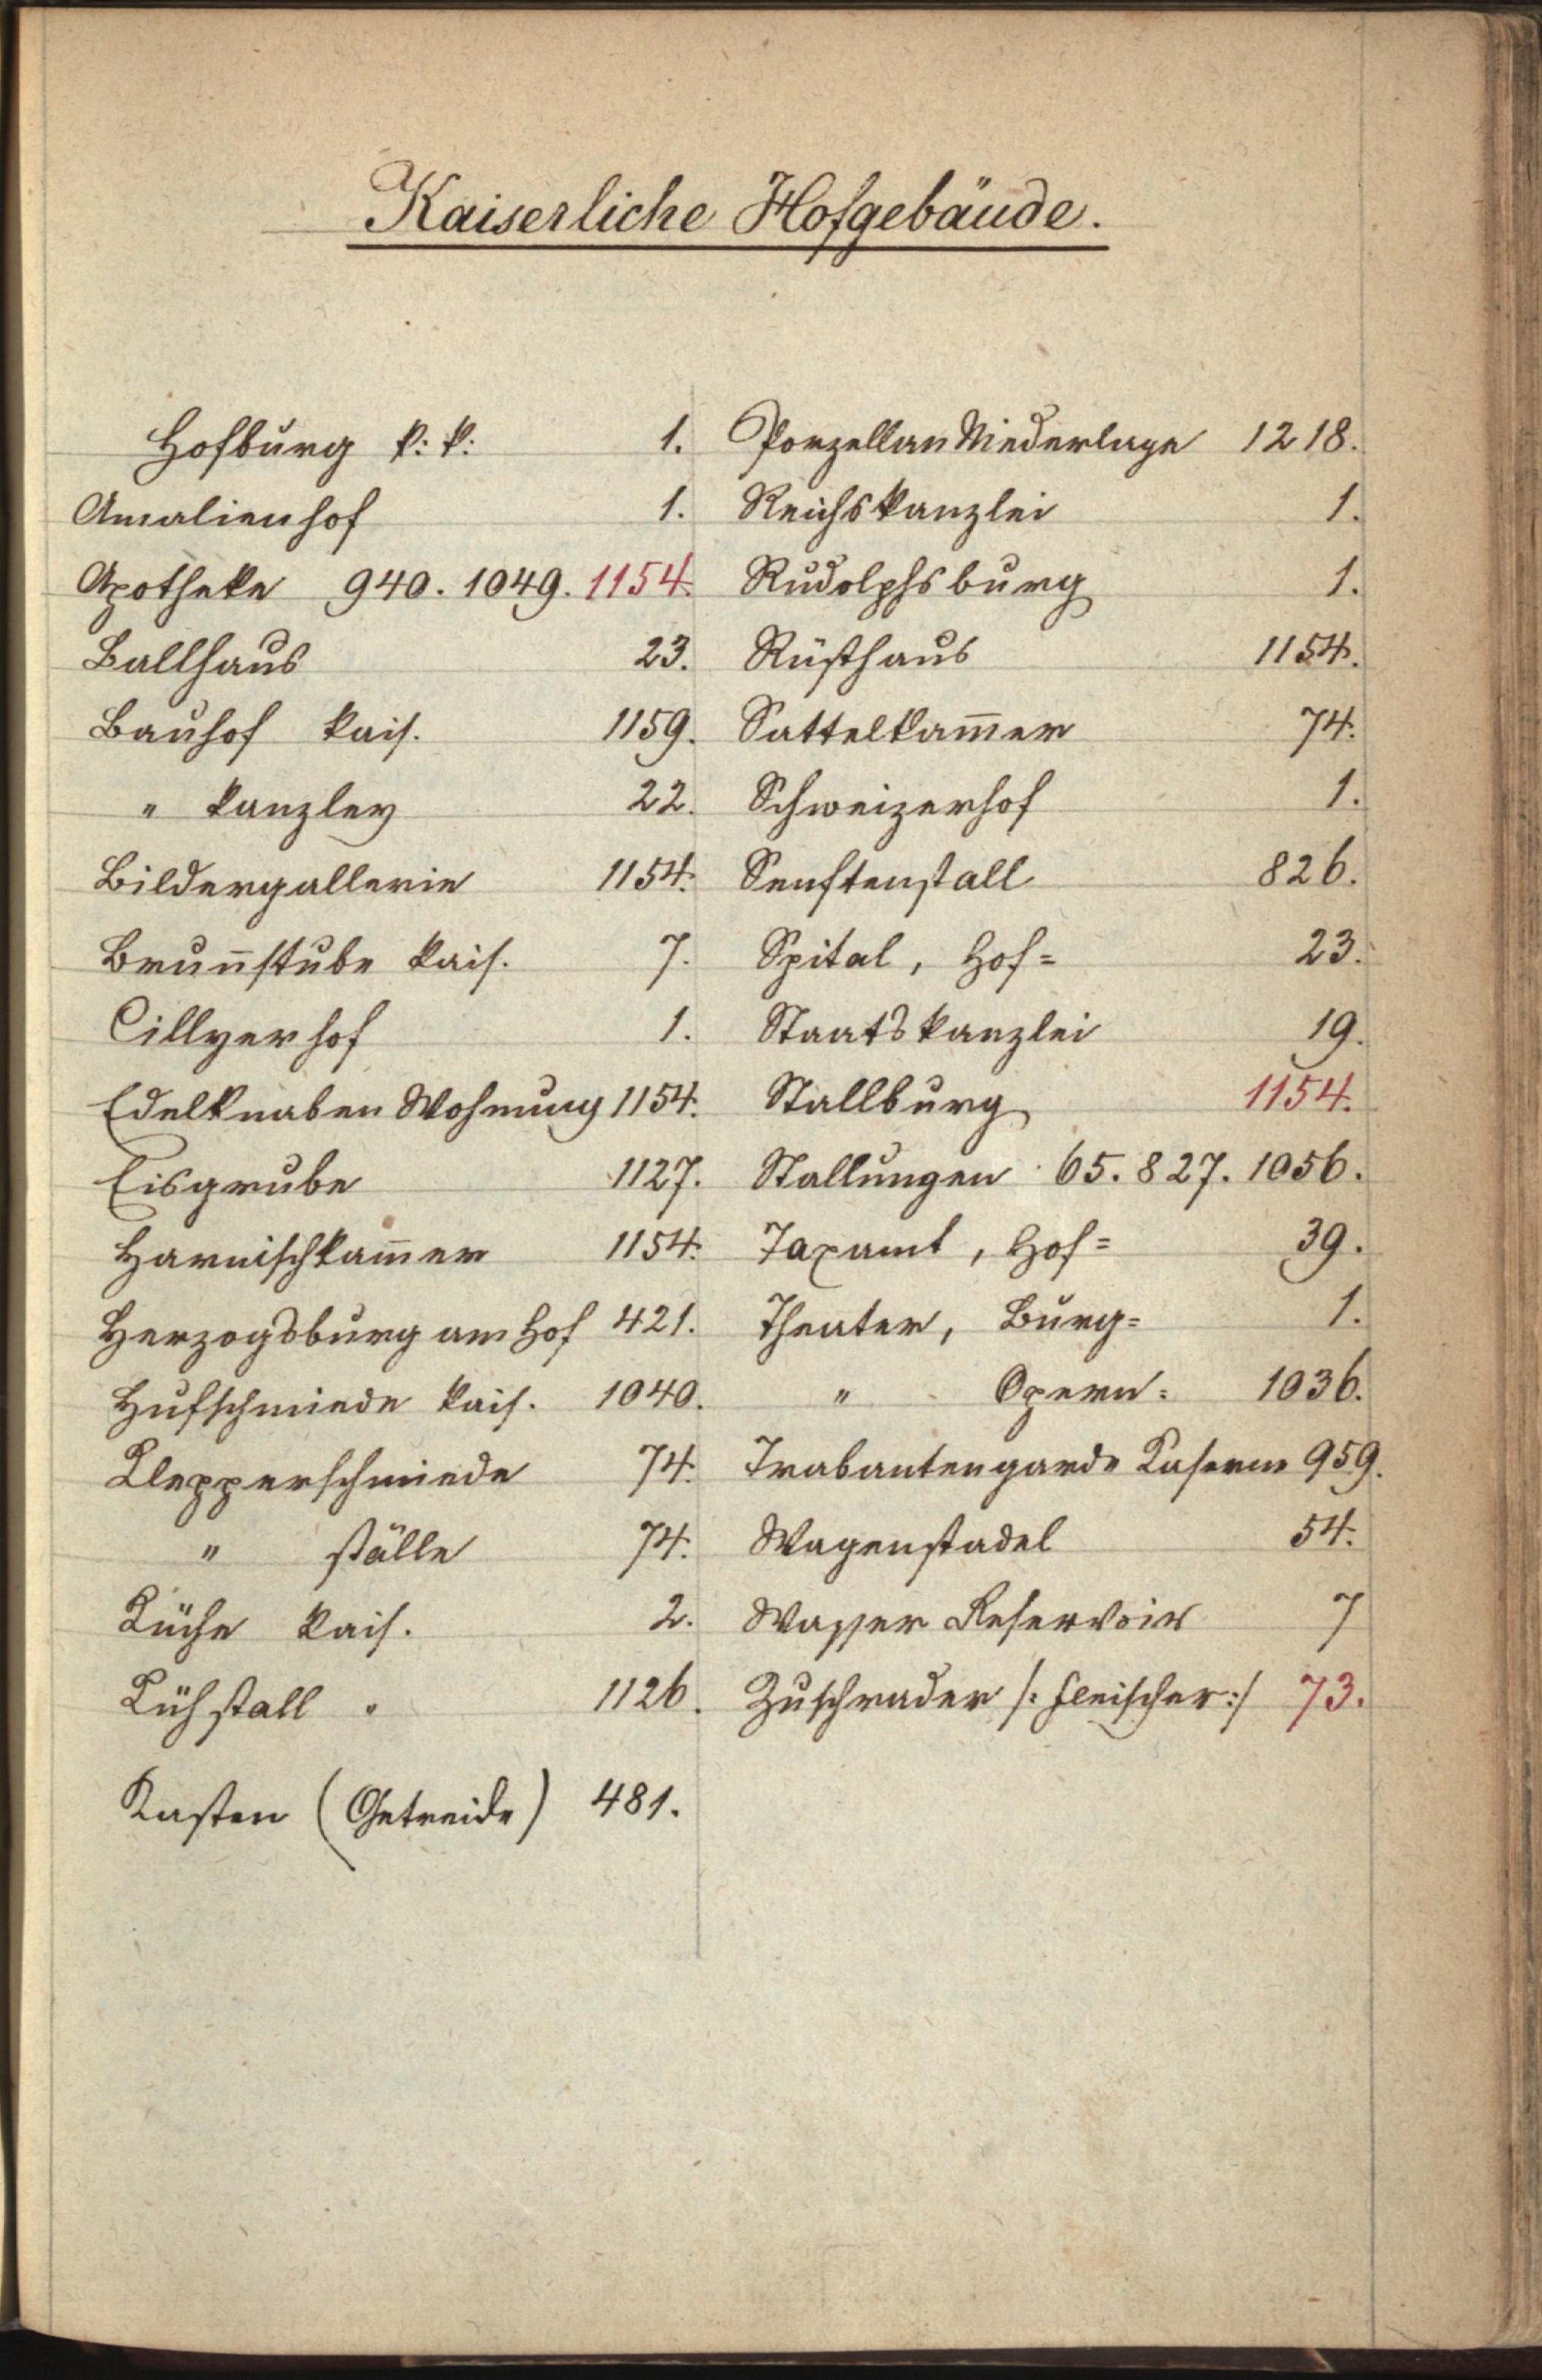 Kaiserliche Hofgebäude.
Hofburg k: k: 1.
Amalienhof 1.
Apotheke 940. 1049. 1154.
Ballhaus 23.
Bauhof kais. 1159.
" kanzley 22.
Bildergallerie 1154.
Brun̄stube kais. 7.
Cillyerhof 1.
Edelknaben Wohnung 1154.
Eisgrube 1127.
Harnischkam̄er 1154.
Herzogsburg am Hof 421.
Hufschmiede kais. 1040.
Klepperschmiede 74.
" ställe 74.
Küche kais. 2.
Kühstall " 1126.
Kasten (Getreide) 481.
Porzellan Niederlage 1218.
Reichskanzlei 1.
Rudolphsburg 1.
Rüsthaus 1154.
Sattelkam̄er 74.
Schweizerhof 1.
Senftenstall 826.
Spital, Hof= 23.
Staatskanzlei 19.
Stallburg 1154.
Stallungen 65. 827. 1056.
Taxamt, Hof= 39.
Theater, Burg= 1.
" Opern= 1036.
Trabantengarde Kaserne 959.
Wagenstadel 54.
Wasser Reservoir 7
Zuschrader /: Fleischer :/ 73.